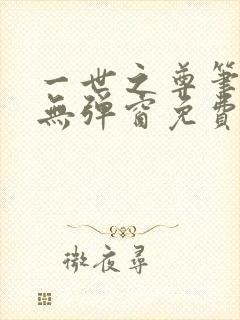 一世之尊筆
無彈窗免費
微夜尋